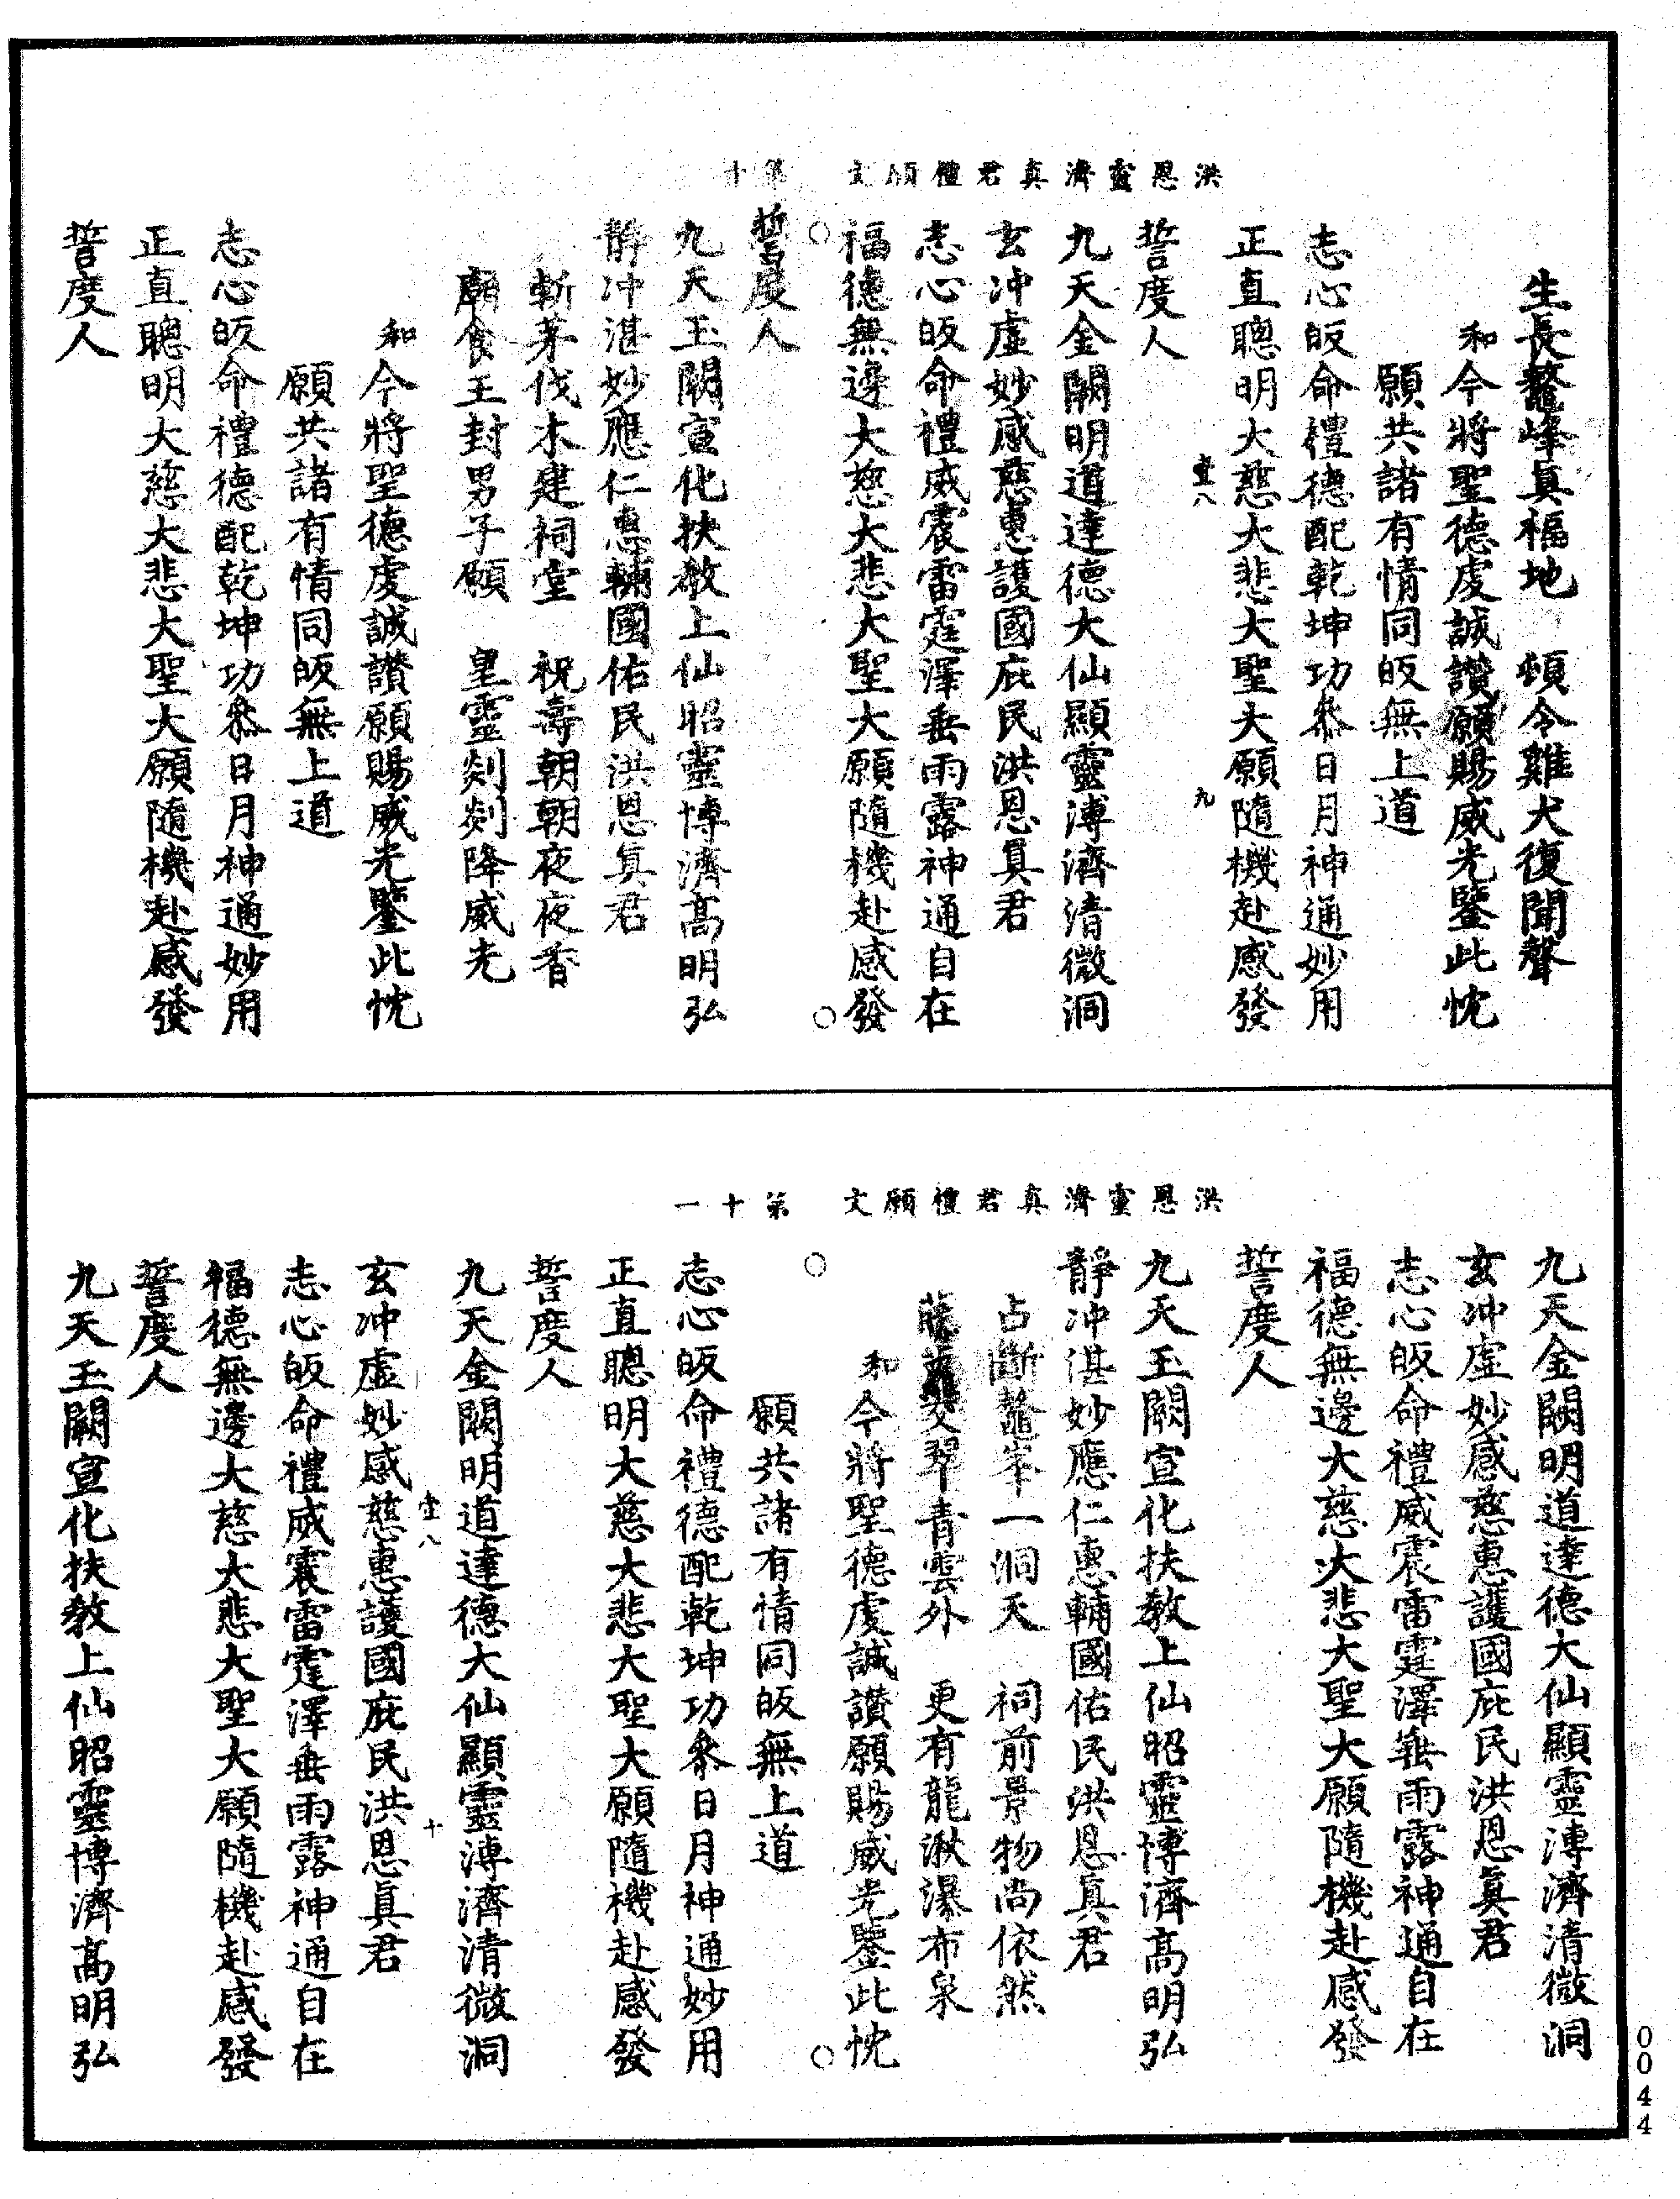 洪恩靈濟真君禮願文　第十
生長鼇峰真福地　頓令雞犬復聞聲
和今將聖德虔誠讚願賜威光鑒此忱
願共諸有情同皈無上道
志心皈命禮德配乾坤功叅日月神通妙用
正直聰明大慈大悲大聖大願隨機赴感發
壹八　九
誓度人
九天金闕明道達德大仙顯靈溥濟清微洞
玄冲虛妙感慈惠護國庇民洪恩真君
志心皈命禮威震雷霆澤垂雨露神通自在
福德無邊大慈大悲大聖大願隨機赴感發
誓度人
九天玉闕宣化扶教上仙昭靈博濟高明弘
靜冲湛妙應仁惠輔國佑民洪恩真君
斬茅伐木建祠堂　祝壽朝朝夜夜香
廟食王封男子願　皇靈剡剡降威光
和今將聖德虔誠讚願賜威光鑒此忱
願共諸有情同皈無上道
志心皈命禮德配乾坤功叅日月神通妙用
正直聰明大慈大悲大聖大願隨機赴感發
誓度人
洪恩靈濟真君禮願文　第十一
九天金闕明道達德大仙顯靈溥濟清微洞
玄冲虛妙感慈惠護國庇民洪恩真君
志心皈命禮威震雷霆澤垂雨露神通自在
福德無邊大慈大悲大聖大願隨機赴感發
誓度人
九天玉闕宣化扶教上仙昭靈博濟高明弘
靜冲湛妙應仁惠輔國佑民洪恩真君
占斷鼇峯一洞天　祠前景物尚依然
藤蘿交翠青雲外　更有龍湫瀑布泉
和今將聖德虔誠讚願賜威光鑒此忱
願共諸有情同皈無上道
志心皈命禮德配乾坤功叅日月神通妙用
正直聰明大慈大悲大聖大願隨機赴感發
誓度人
九天金闕明道達德大仙顯靈溥濟清微洞
壹八　十
玄冲虛妙感慈惠護國庇民洪恩真君
志心皈命禮威震雷霆澤垂雨露神通自在
福德無邊大慈大悲大聖大願隨機赴感發
誓度人
九天玉闕宣化扶教上仙昭靈博濟高明弘
0044